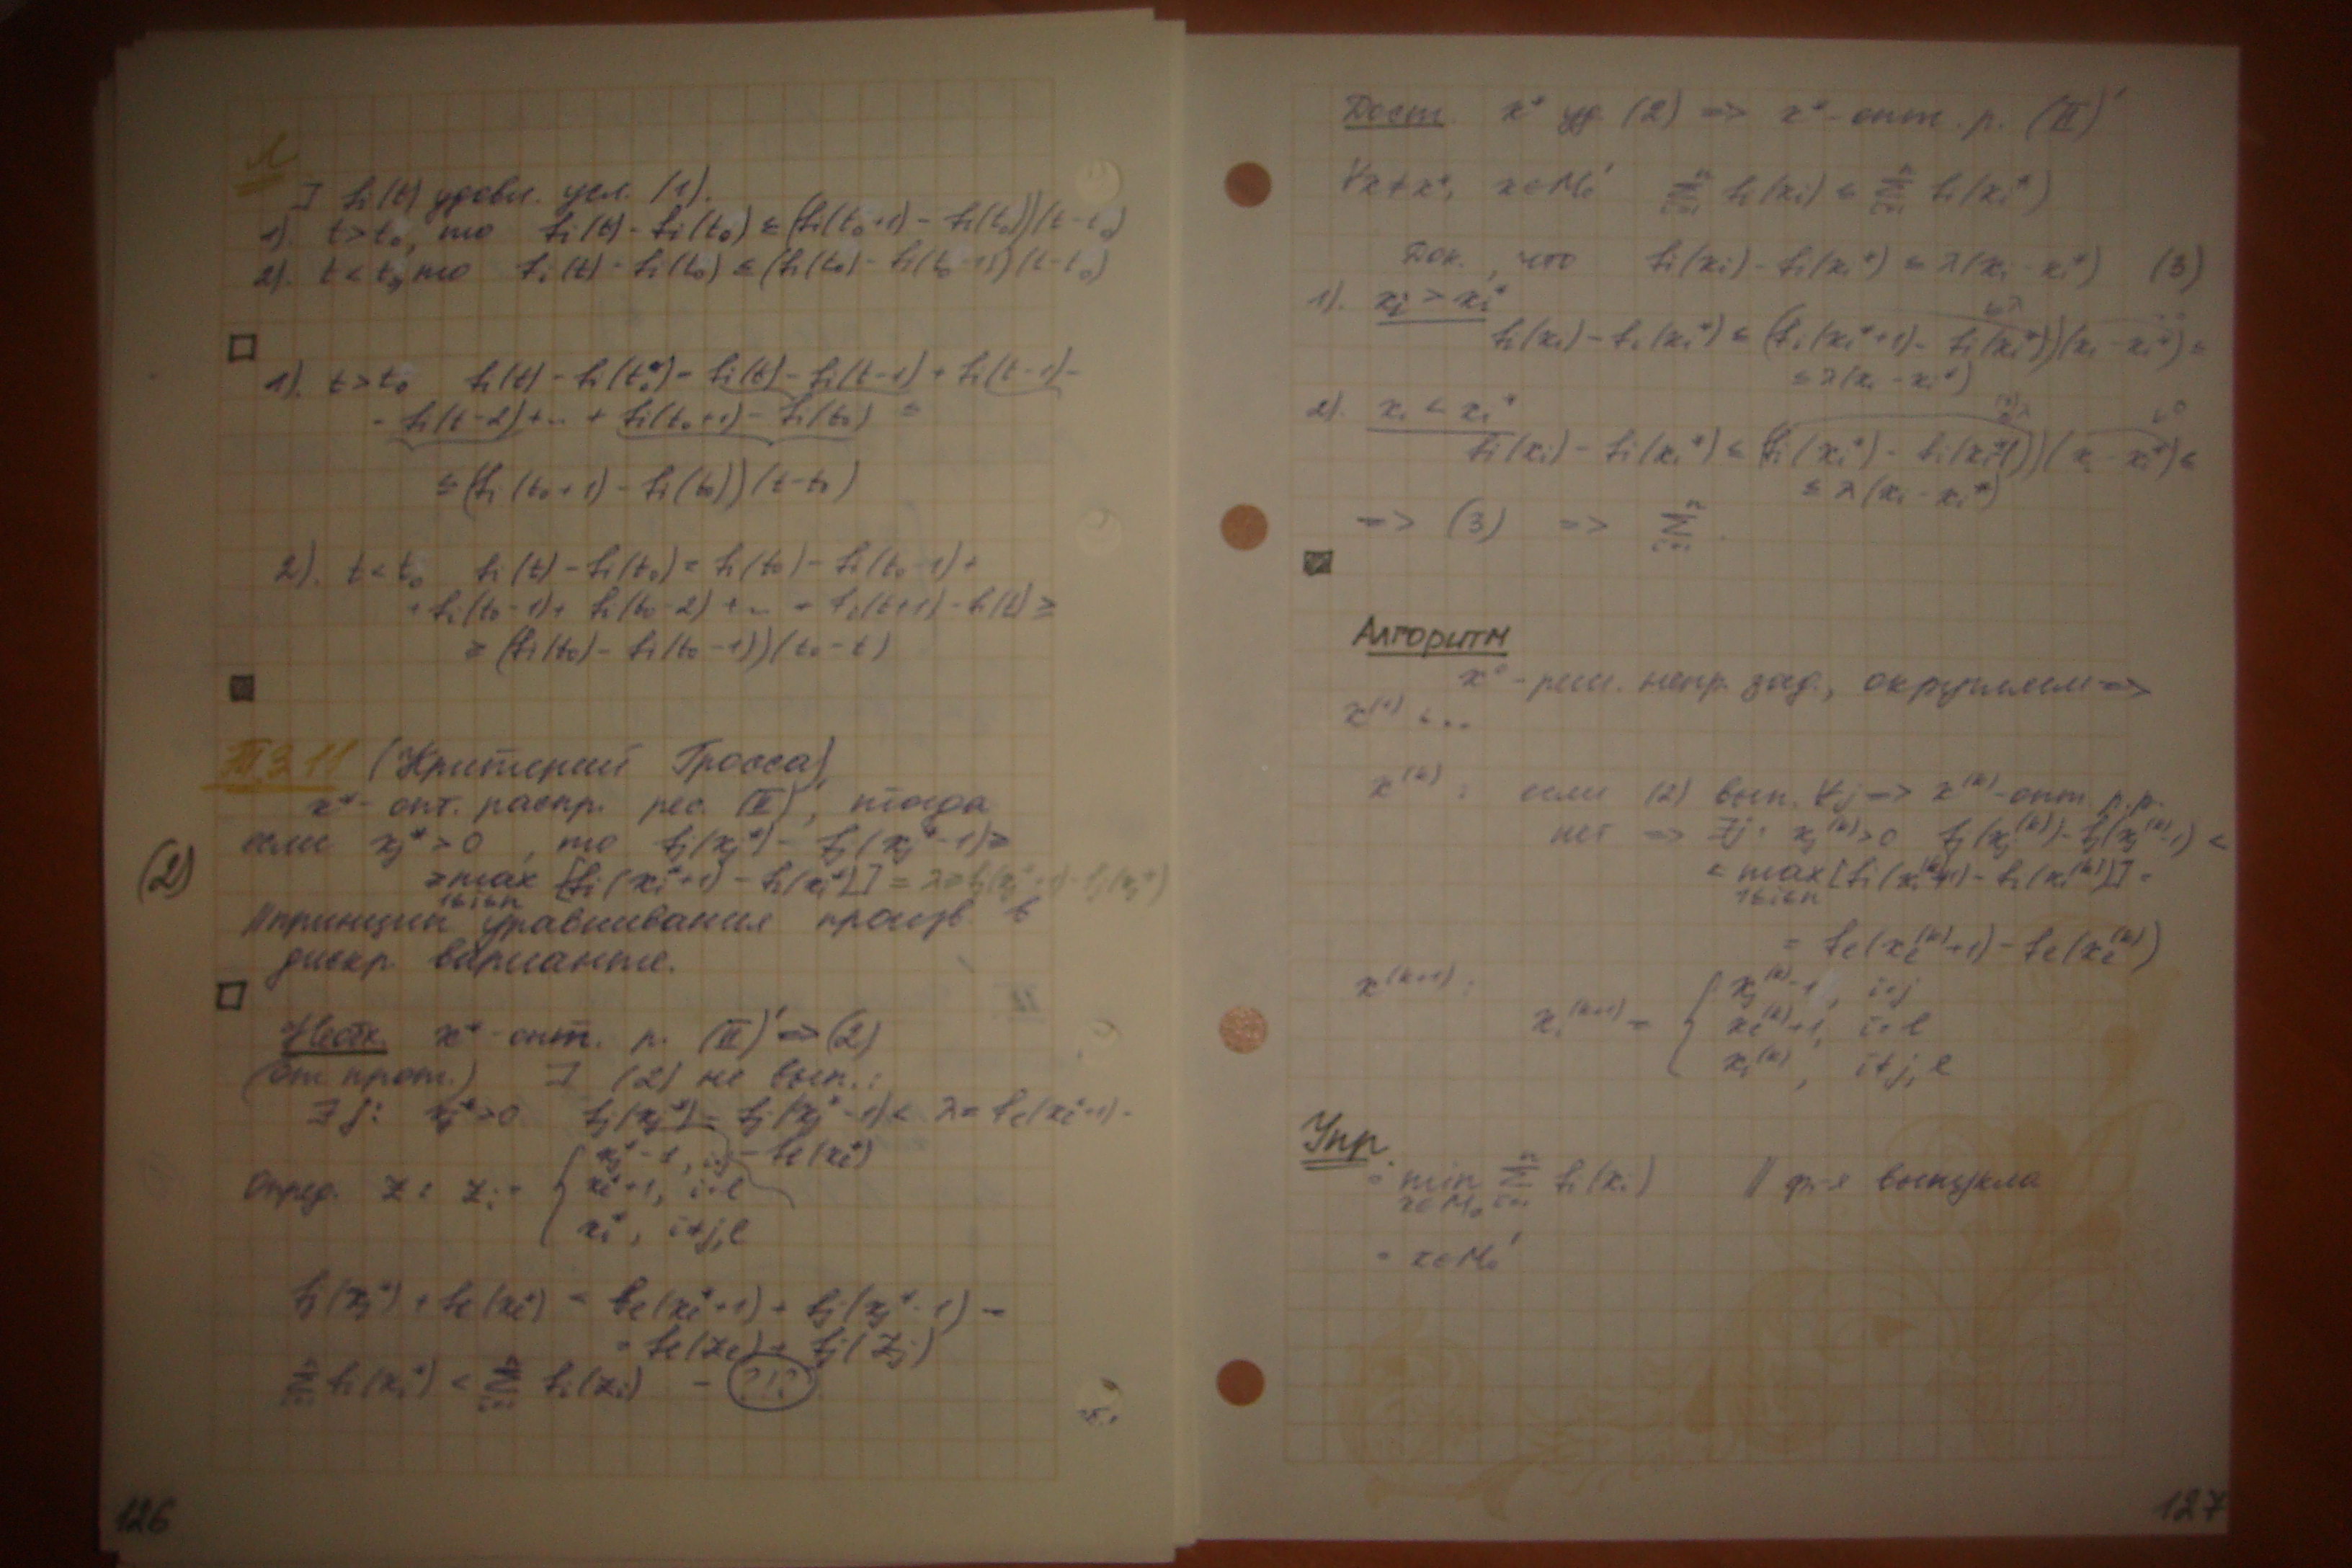 Л
] fi(t) удовл. усл. (1).
1). t > t₀, то fi(t) - fi(t₀) ≤ (fi(t₀+1) - fi(t₀))(t-t₀)
2). t < t₀, то fi(t) - fi(t₀) ≤ (fi(t₀) - fi(t₀-1))(t-t₀)
1). t > t₀ fi(t) - fi(t₀) = fi(t) - fi(t-1) + fi(t-1) -
- fi(t-2) + ... + fi(t₀+1) - fi(t₀) ≤
≤ (fi(t₀+1) - fi(t₀))(t-t₀)
2). t < t₀ fi(t) - fi(t₀) = fi(t₀) - fi(t₀-1) +
+ fi(t₀-1) + fi(t₀-2) + ... + fi(t+1) - fi(t) ≥
≥ (fi(t₀) - fi(t₀-1))(t₀-t)
Т 3.11 (Критерий Гросса)
x* - опт. распр. рес. (II)', тогда
если xj* > 0, то fj(xj*) - fj(xj*-1) ≥
(2) ≥ max [fi(xi*+1) - fi(xi*)] = λ ≥ fj(xj*+1) - fj(xj*)
1≤i≤n
// принцип уравнивания произв в
дискр. варианте.
Необх. x* - опт. р. (II)' => (2)
(от прот.) ] (2) не вып.:
∃ j: xj* > 0 fj(xj*) - fj(xj*-1) < λ = fl(xl*+1) -
- fl(xl*)
Опред. z: zi = { xj*-1, i=j
xl*+1, i=l
xi*, i≠j,l
fj(xj*) + fl(xl*) < fl(xl*+1) + fj(xj*-1) =
= fl(zl) + fj(zj)
Σ fi(xi*) < Σ fi(zi) - ?!?
126
Дост x* уд. (2) => x* - опт. р. (II)'
∀x≠x*, x∈M₀' Σ fi(xi) ≤ Σ fi(xi*)
Док., что fi(xi) - fi(xi*) ≤ λ(xi - xi*) (3)
1). xi > xi*
fi(xi) - fi(xi*) ≤ (fi(xi*+1) - fi(xi*))(xi - xi*) ≤
≤ λ(xi - xi*)
2). xi < xi*
fi(xi) - fi(xi*) ≤ (fi(xi*) - fi(xi*-1))(xi - xi*) ≤
≤ λ(xi - xi*)
=> (3) => Σ.
Алгоритм
x⁰ - реш. непр. зад., округляем =>
x⁽¹⁾ ...
x⁽ᵏ⁾: если (2) вып. ∀j => x⁽ᵏ⁾ - опт. р.р.
нет => ∃j: xj⁽ᵏ⁾>0 fj(xj⁽ᵏ⁾) - fj(xj⁽ᵏ⁾-1) <
< max [fi(xi⁽ᵏ⁾+1) - fi(xi⁽ᵏ⁾)] =
1≤i≤n
= fl(xl⁽ᵏ⁾+1) - fl(xl⁽ᵏ⁾)
x⁽ᵏ⁺¹⁾: xi⁽ᵏ⁺¹⁾ = { xj⁽ᵏ⁾-1, i=j
xl⁽ᵏ⁾+1, i=l
xi⁽ᵏ⁾, i≠j,l
Упр.
• min Σ fi(xi) // ф-я выпукла
x∈M₀
• x∈M₀'
127